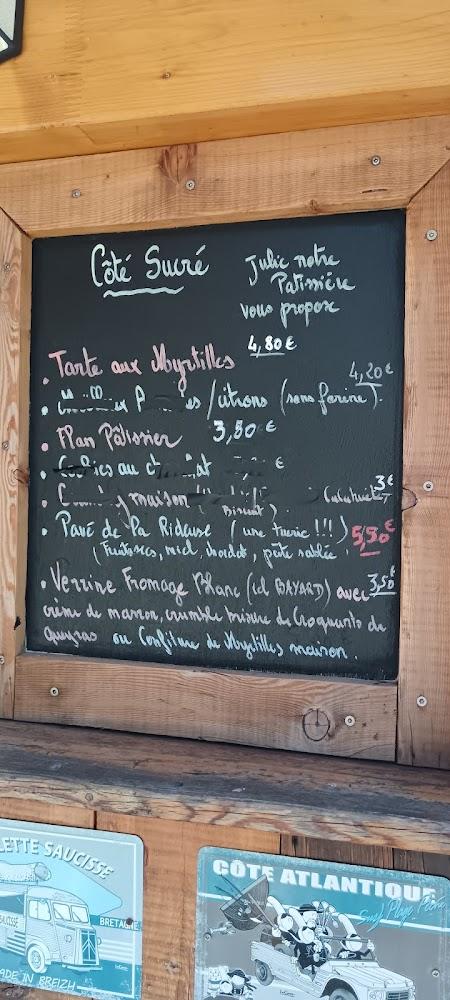 Côté Sucré
Julie notre
Patissière
vous propose
Tarte aux Myrtilles 4,80€
/citrons (sans farine). 4,20€
Flan Pâtissier 3,50€
Cookies au €
maison ( Biscuit) 3€
Pavé de la Rideuse (une tuerie !!!) 5,50€
( miel, , pâte sablée.
Verrine Fromage Blanc (id BAYARD) avec 3,50€
crème de marron, crumble brisure de Croquants de
queyras ou Confiture de Myrtilles maison.
LETTE SAUCISSE
BRETAGNE
MADE IN BREIZH
CÔTE ATLANTIQUE